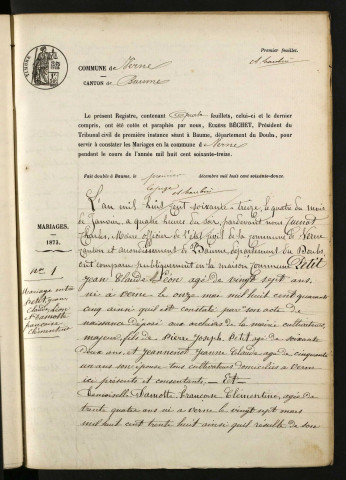 Premier feuillet.
COMMUNE de Verne
CANTON de Baume
TIMBRE
Le présent Registre, contenant quatre feuillets, celui-ci et le dernier
compris, ont été cotés et paraphés par nous, BÉCHET, Président du
Tribunal civil de première instance séant à Baume, département du Doubs, pour
servir à constater les Mariages en la commune de Verne
pendant le cours de l'année mil huit cent soixante-treize.
Fait double à Baume, le premier décembre mil huit cent soixante-douze.
MARIAGES.
1873.
N° 1
Mariage entre
Petit Jean
Claude Léon
et Damotte
françoise
Clémentine
L'an mil huit cent soixante-treize, le quatre du mois
de Janvier à quatre heures du soir, pardevant nous
Charles, Maire officier de l'état civil de la commune de Verne
canton et arrondissement de Baume, département du Doubs
ont comparu publiquement en la maison commune Petit
Jean Claude Léon agé de vingt sept ans,
né à Verne le onze mai mil huit cent quarante
cinq ainsi qu'il est constaté par son acte de
naissance déposé aux archives de la mairie cultivateur,
majeur, fils de Pierre Joseph Petit agé de soixante
deux ans, et Jeannenot Jeanne Claude agée de cinquante
un ans son épouse tous cultivateurs domiciliés à Verne
ici présents et consentants, — Et —
Demoiselle Damotte Françoise Clémentine, agée de
trente quatre ans née à Verne le vingt sept mars
mil huit cent trente huit ainsi qu'il résulte de son